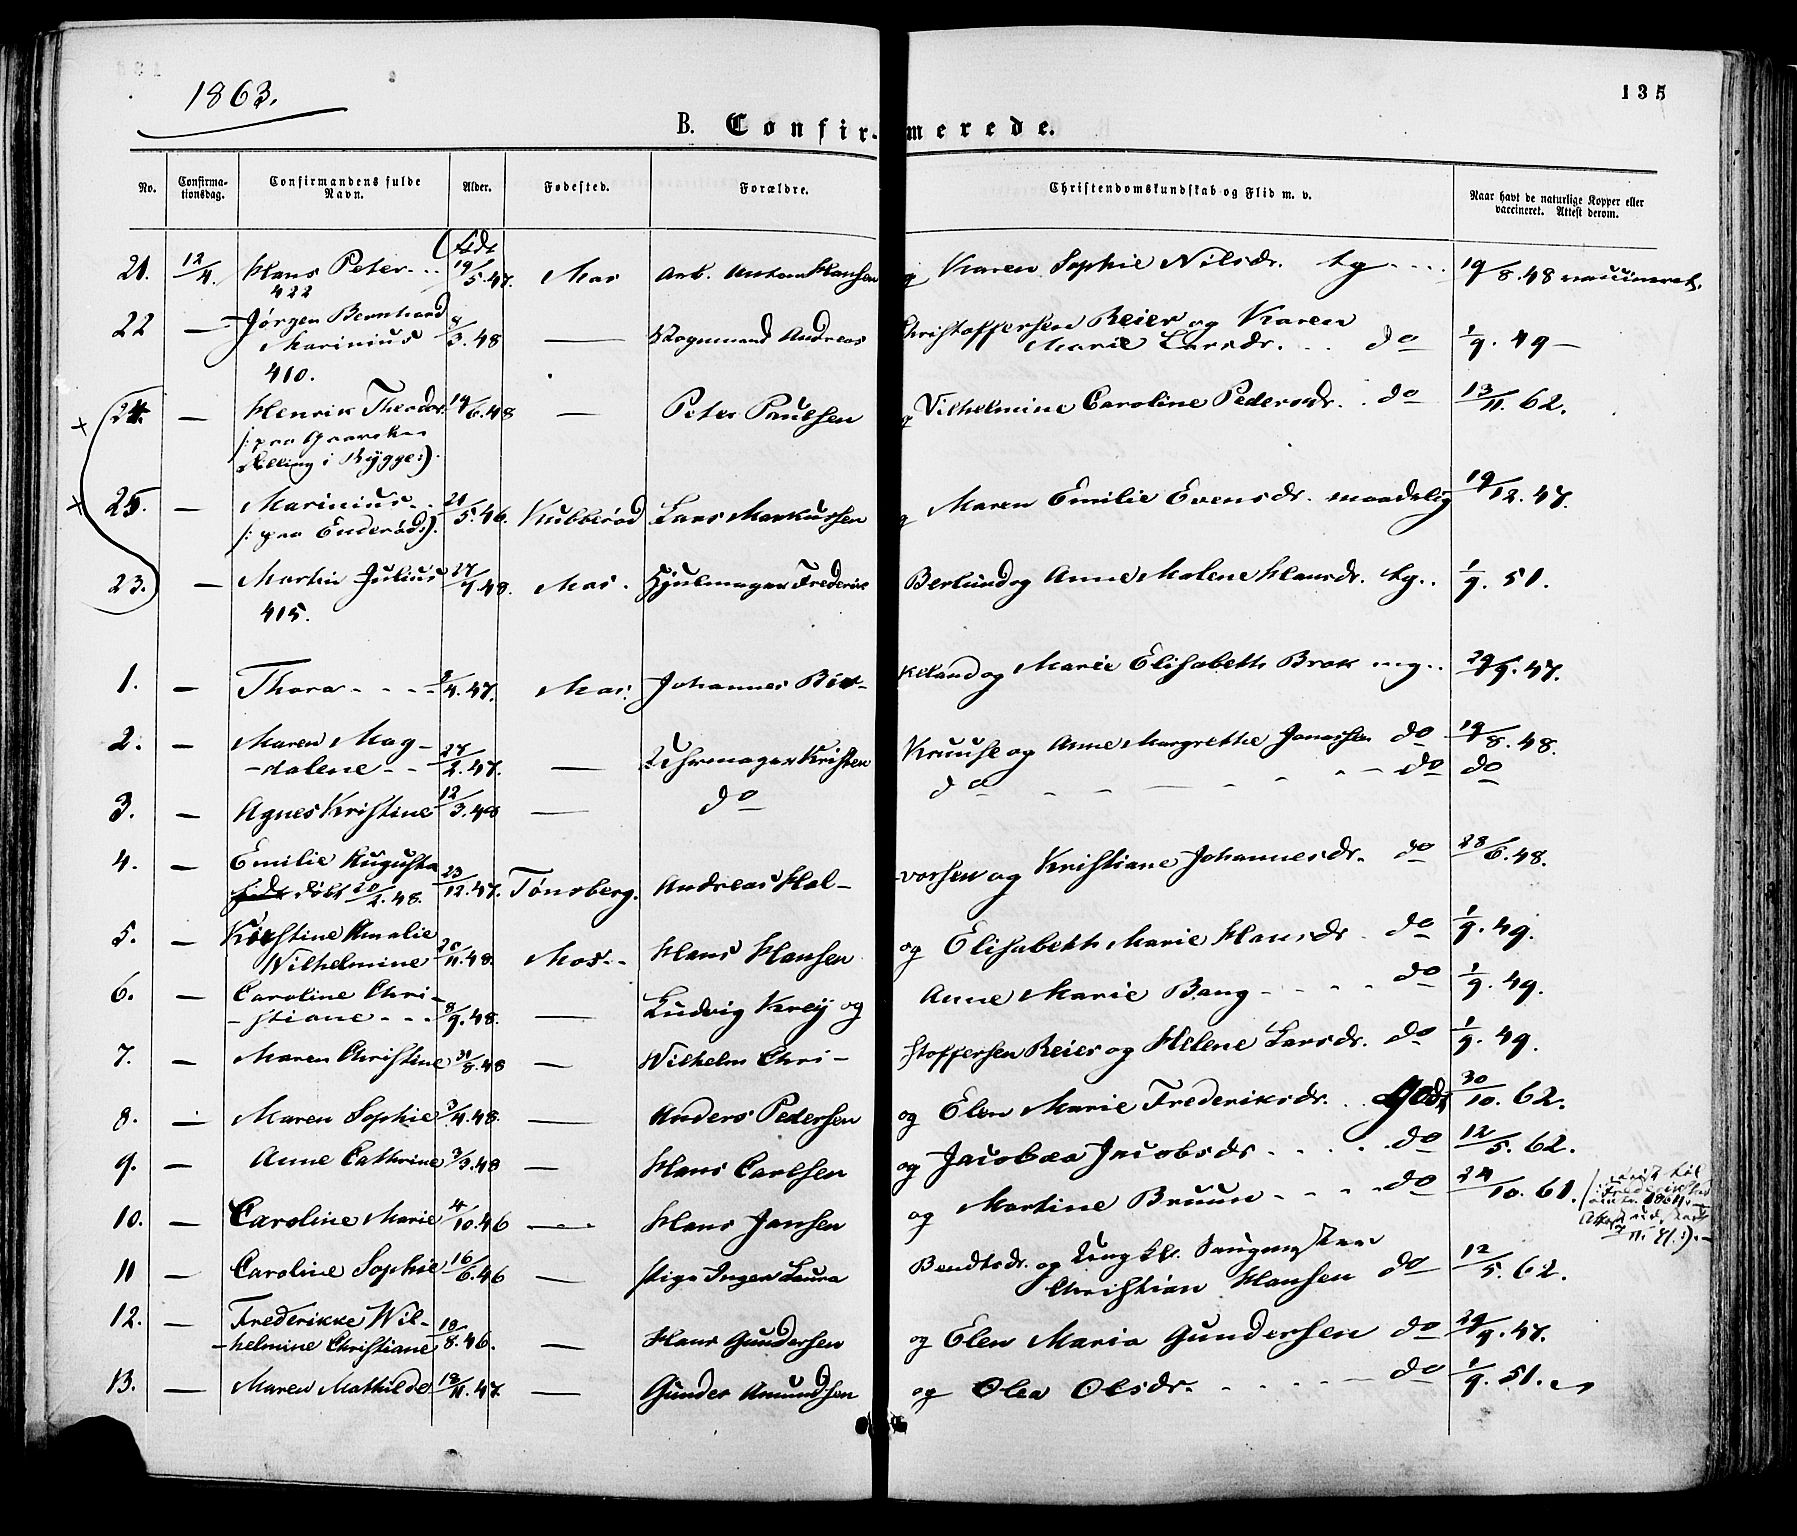 1863.
135
B. Confir- merede.
No. Confirma-tionsdag. Confirmandens fulde Navn. Alder. Fødested. Forældre. Christendomskundskab og Flid m. v. Naar havt de naturlige Kopper eller vaccineret. Attest derom.
21. 12/4. Hans Peter 19/5.47. Mos Arb. Anton Hansen og Karen Sophie Nilsdr. tg 19/8.48 vaccineret.
422
22 — Jørgen Bernhard 8/3.48 — Andreas Christoffersen Reier og Karen
Marinius Marie Larsdr. do 1/9.49 —
410.
24. — Henrik Theodor 14/6.48 — Peter Paulsen og Vilhelmine Caroline Pedersdr. do 13/11.62.
i Rygge:).
25. — Marinius 21/5.46. Kubberød Lars Markussen og Maren Emilie Evensdr. maadelig 19/12.47.
(: paa Enderød:).
23. — Martin Julius 27/7.48. Mos. Hjulmager Frederik Berlund og Anne Malene Hansdr. tg. 1/9.51.
415.
1. — Thora 2/4.47. Mos. Johannes Bir-keland og Marie Elisabeth Brok mg. 29/9.47.
2. — Maren Mag-
dalene 27/2.47. — Uhrmager Kristen Kruuse og Anne Margrethe Jonassen do 19/8.48.
3. — Agnes Kristine 12/3.48 — do do do do
4. — Emilie Augusta 23/12.47. Tønsberg. Andreas Hal-vorsen og Kristiane Johannesdr. do 28/6.48.
døbt 20/2.48.
5. — Kristine Amalie
Wilhelmine 20/11.48. Mos. Hans Hansen og Elisabeth Marie Hansdr. do 1/9.49.
6. — Caroline Chri-
stiane 8/9.48. — Ludvig Krey og Anne Marie Bang do 1/9.49.
7. — Maren Christine 31/8.48 — Wilhelm Chri-stoffersen Reier og Helene Larsdr. do 1/9.49.
8. — Maren Sophie 3/4.48. — Anders Pedersen og Elen Marie Frederiksdr. Godt 30/10.62.
9. — Anne Cathrine 3/3.48 — Hans Carlsen og Jacobæa Jacobsdr do 12/5.62.
10. — Caroline Marie 4/10.46 — Hans Jansen og Martine Bruun do 24/10.61.
11 — Caroline Sophie 16/6.46 — Pige Inger Laura Bendtsdr. og Ungkl.
Christian Hansen do 12/5.62.
12. — Frederikke Wil-
helmine Christiane 18/8.46. — Hans Gundersen og Elen Maria Gundersen do 29/9.47.
13. — Maren Mathilde 18/11.47 — Gunder Amundsen og Olea Olsdr. do 1/9.51.